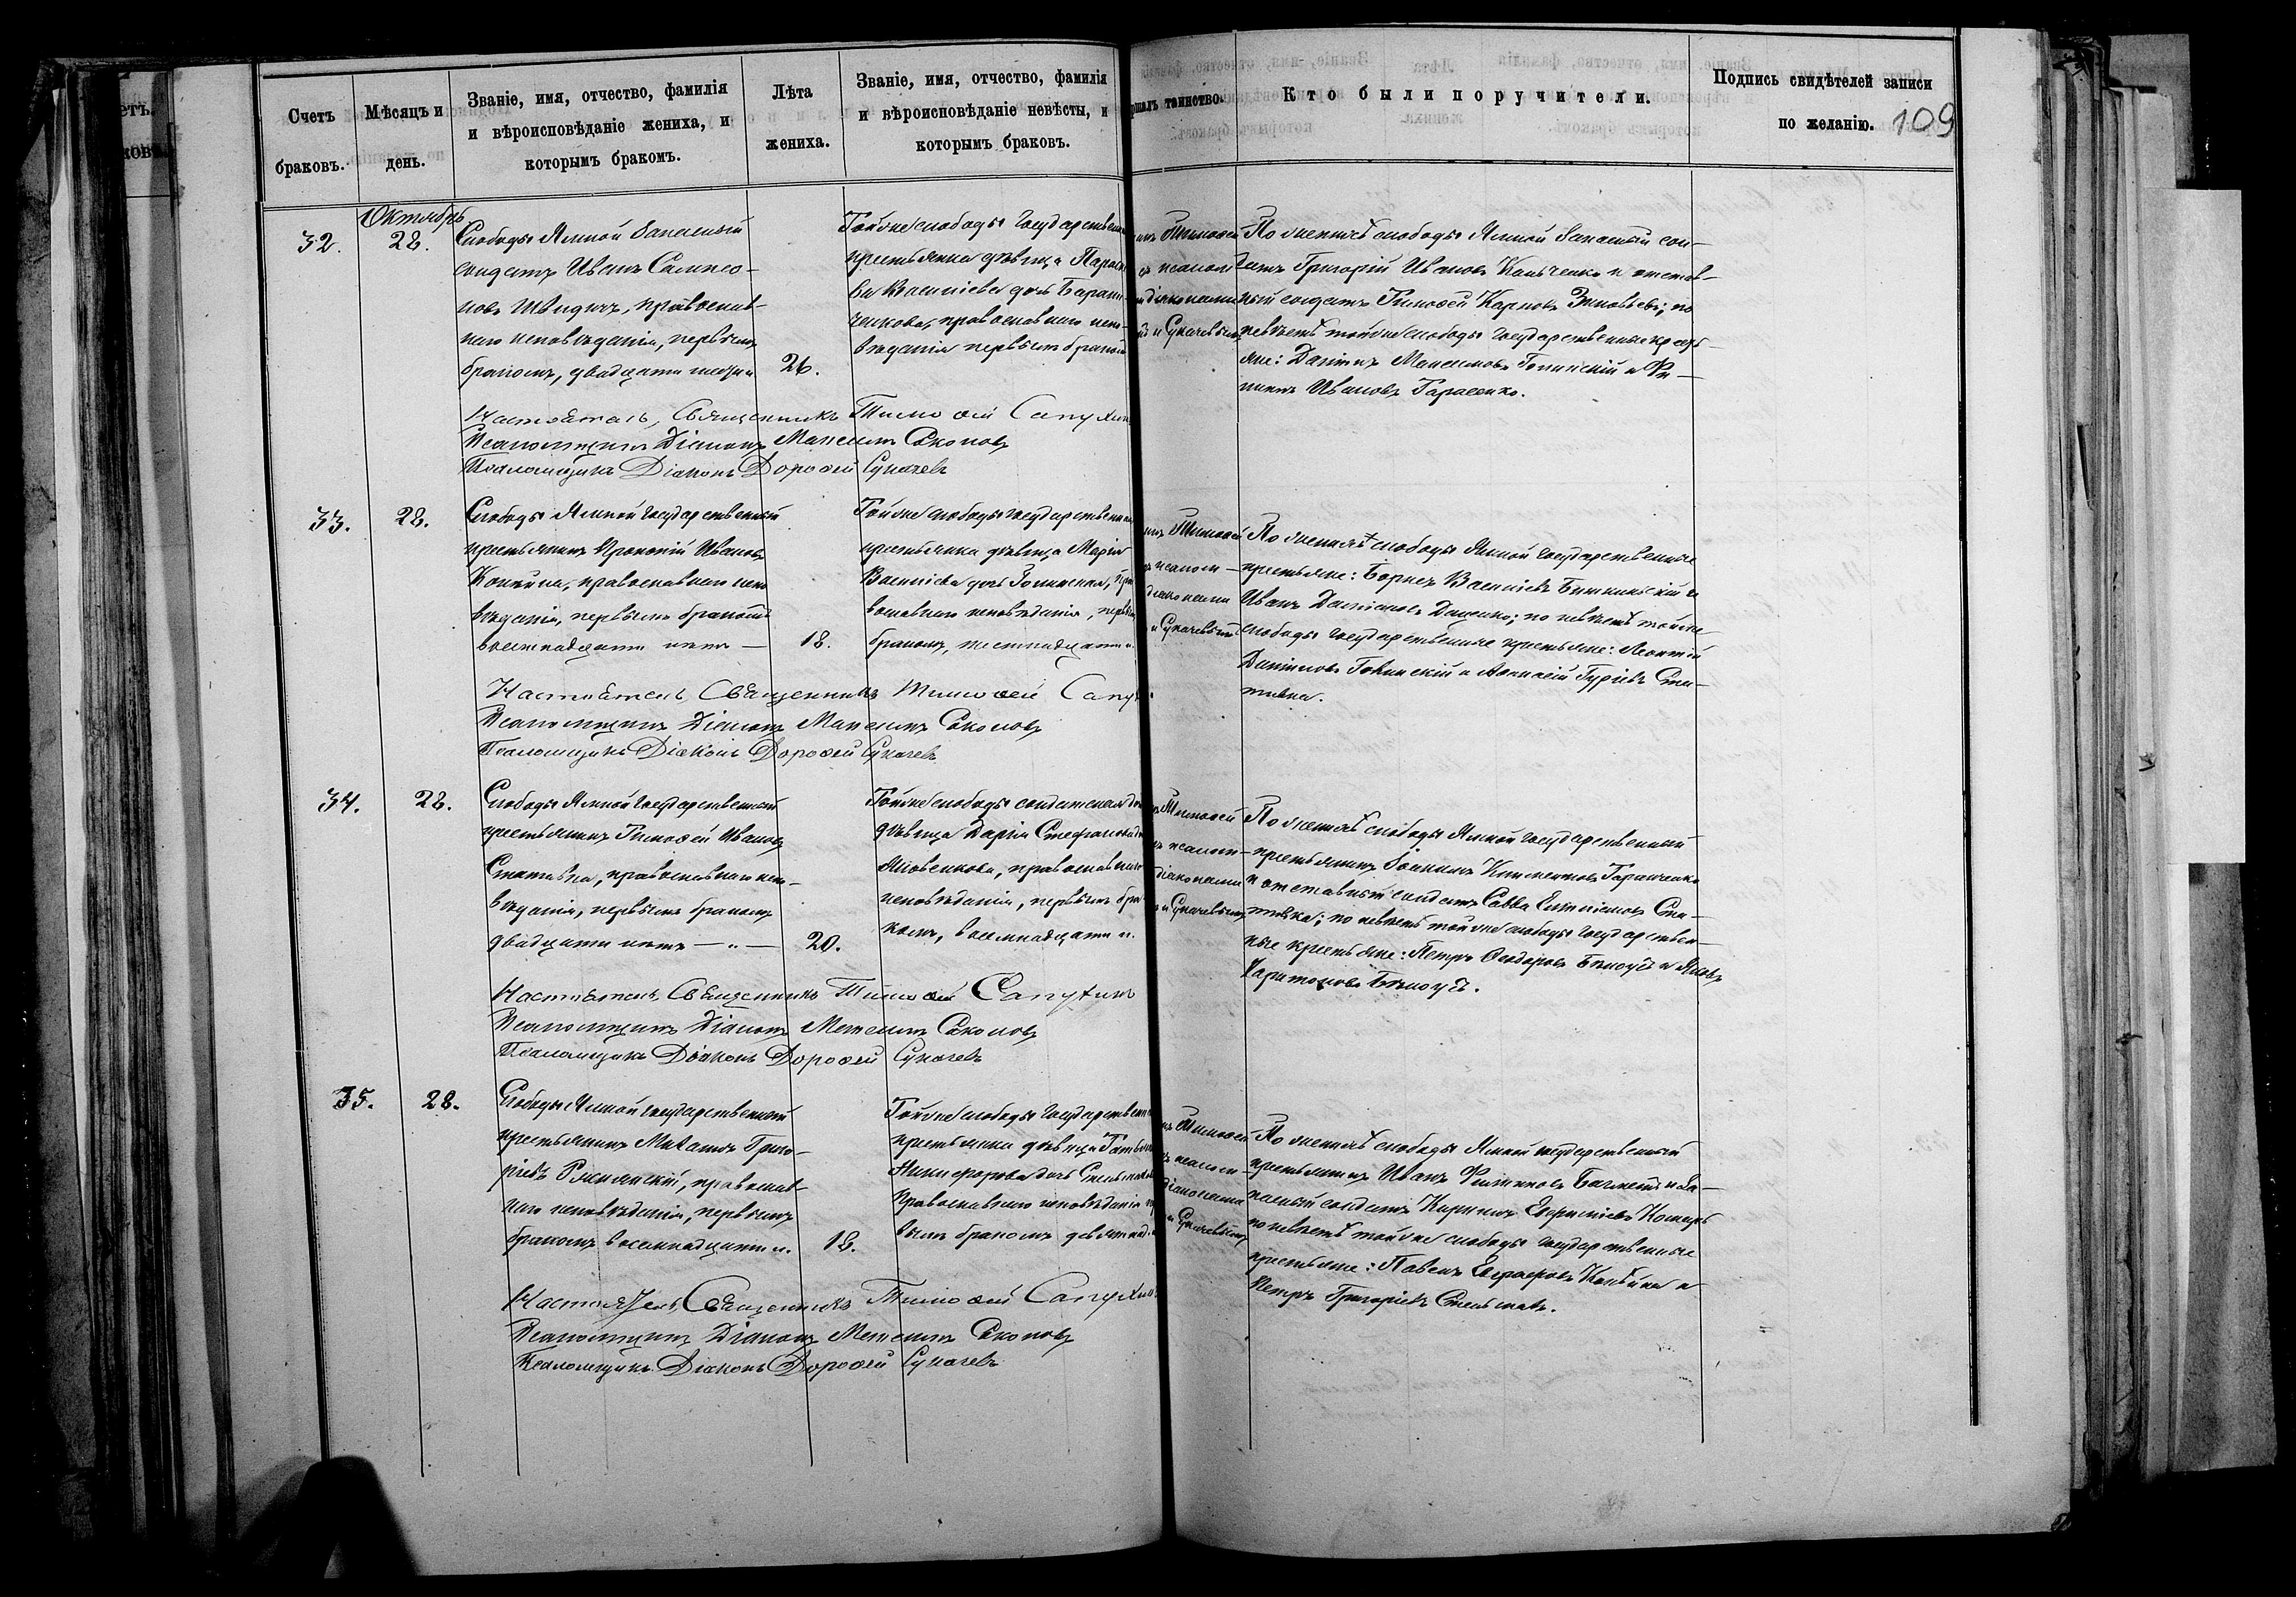 Счетъ
браковъ.
Мѣсяцъ и
день.
Званіе, имя, отчество, фамилія
и вѣроисповѣданіе жениха, и
которымъ бракомъ.
Лѣта
жениха.
Званіе, имя, отчество, фамилія
и вѣроисповѣданіе невѣсты, и
которымъ браковъ.
таинство.
Кто были поручители.
Подпись свидѣтелей записи
по желанію.
109
32.
Октябрь
28.
Слободы Ямной Запасный
солдатъ Иванъ Сампсо-
новъ православ-
наго исповѣданія, первымъ
бракомъ, двадцати шести
26.
Тойже слободы государствен
крестьянка дѣвица Параск
Васильева дочь
православнаго испо-
вѣданія первымъ бракомъ
Тимофей
псалом
діаконами
и Сукачевымъ
По женихѣ слободы Ямной Запасный сол-
датъ Григорій Ивановъ и отстав-
ный солдатъ Тимофей Карповъ Зиновьевъ; по
невѣстѣ тойже слободы государственные кресть-
яне: Даніилъ Максимовъ и Фи-
Ивановъ Тарасенко.
Настоятель, Священникъ Тимофей Сапухин
Псаломщикъ Діаконъ Максимъ Соколовъ
Псаломщикъ Діаконъ Дорофей Сукачевъ
33.
28.
Слободы Ямной государственный
крестьянинъ Прокопій Ивановъ
православнаго испо
вѣданія, первымъ бракомъ
восемнадцати лѣтъ —
18.
Тойже слободы государственная
крестьянка дѣвица Марія
Васильева дочь пра
вославнаго исповѣданія, первым
бракомъ, шестнадцати л.
Тимофей
псалом-
діаконами
и Сукачевымъ
По женихѣ слободы Ямной государственные
крестьяне: Васильевъ и
Иванъ Даниловъ Даценко; по невѣстѣ тойже
слободы государственные крестьяне: Леонтій
Даниловъ и Алексій Гурьевъ Ста-
тивка.
Настоятель Священникъ Тимофей Сапу
Псаломщикъ Діаконъ Максимъ Соколовъ
Псаломщикъ Діаконъ Дорофей Сукачевъ
34.
28.
Слободы Ямной государственный
крестьянинъ Тимофей Ивановъ
Статывка, православнаго испо-
вѣданія, первымъ бракомъ
двадцати лѣтъ — „ —
20.
Тойже слободы солдатская до
дѣвица Дарія Стефанова
Яковенкова, православнаго
исповѣданія, первымъ бра-
комъ, восемнадцати л.
Тимофей
псалом-
діаконами
и Сукачевымъ
По женихѣ слободы Ямной государственный
крестьянинъ Іоакимъ Климентовъ Таранченко
и отставный солдатъ Савва Ста-
тивка; по невѣстѣ тойже слободы государствен-
ные крестьяне: Петръ Ѳеодоровъ Бѣлоусъ и Яковъ
Харитоновъ Бѣлоусъ.
Настоятель Священникъ Тимофей Сапухинъ
Псаломщикъ Діаконъ Максимъ Соколовъ
Псаломщикъ Діаконъ Дорофей Сукачевъ
35.
28.
Слободы Ямной государственный
крестьянинъ Михаилъ Григо-
рьевъ православ-
наго исповѣданія, первымъ
бракомъ восемнадцати л.
18.
Тойже слободы государственн
крестьянка дѣвица Татьяна
Никифорова дочь
православнаго исповѣданія пер
вымъ бракомъ девятнад.
Тимофей
псалом-
діаконами
и Сукачевымъ
По женихѣ слободы Ямной государственный
крестьянинъ Иванъ Филиповъ и За-
пасный солдатъ Кириллъ Комаръ
по невѣстѣ тойже слободы государственные
крестьяне: Павелъ и
Петръ Григорьевъ
Настоятель Священникъ Тимофей Сапухин
Псаломщикъ Діаконъ Максимъ Соколовъ
Псаломщикъ Діаконъ Дорофей Сукачевъ